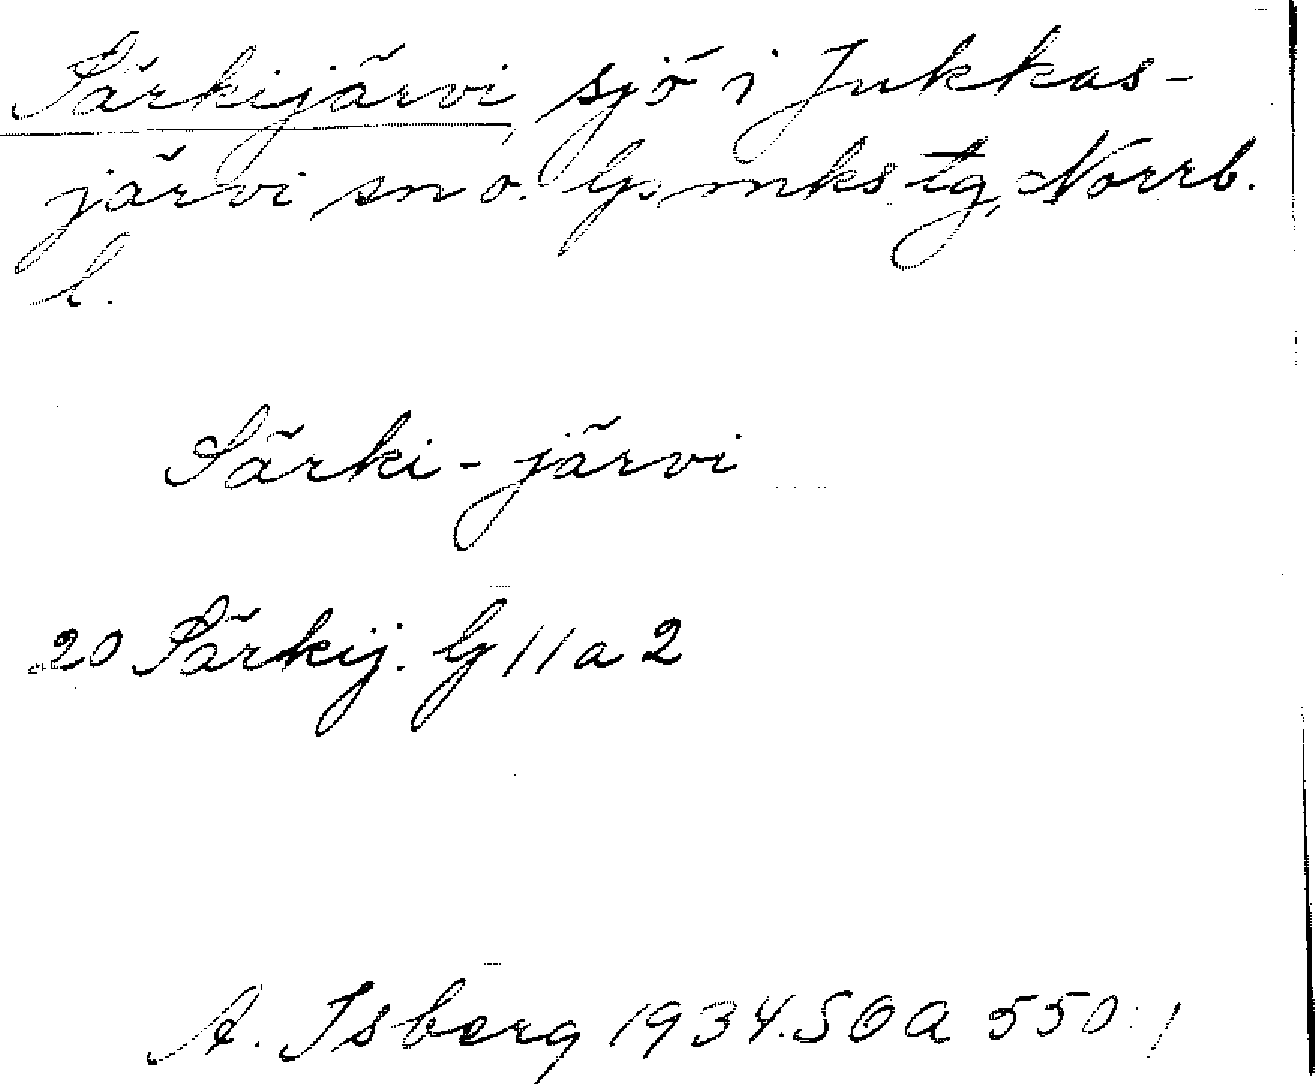 Särkijärvi, sjö i Jukkas-
järvi sn o. Lpmks tg, Norrb.
l.
Särki-järvi
20 Särkij. G 11 a 2
A. Isberg 1934. SOA 550:1